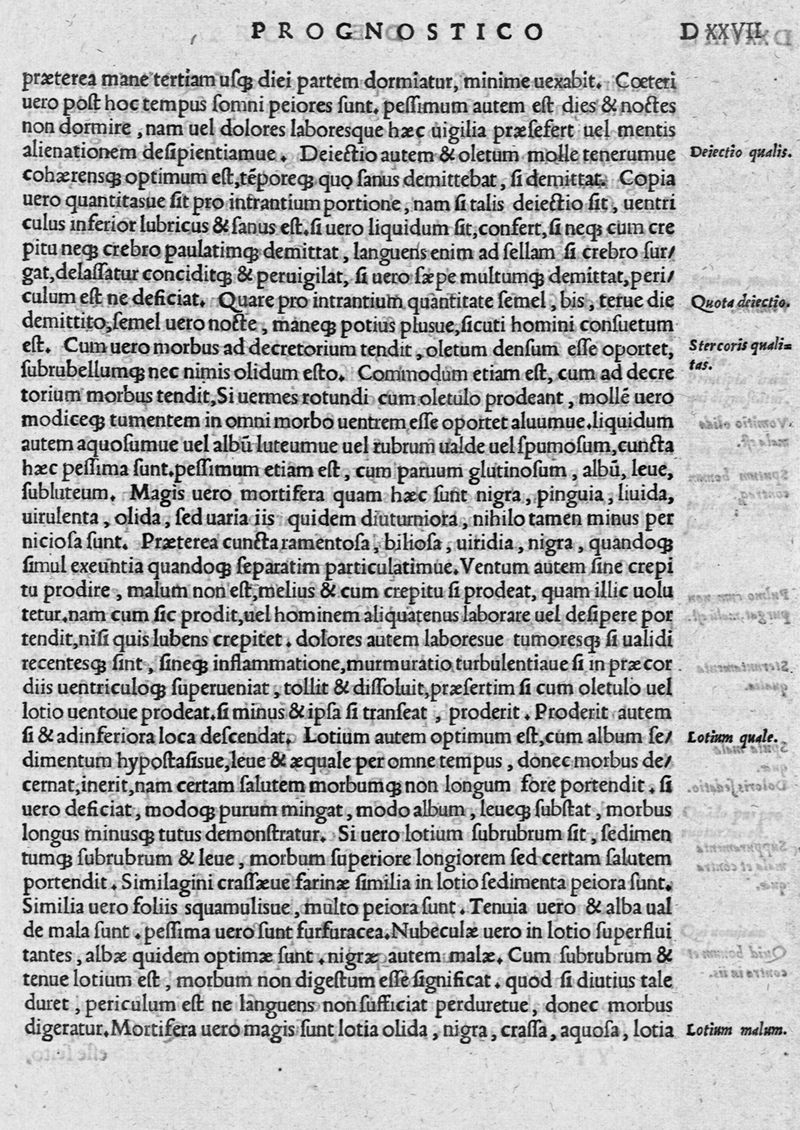 PROGNOSTICO DXXVII
præterea mane tertiam usq; diei partem dormiatur, minime uexabit. Cœteri
uero post hoc tempus somni peiores sunt. pessimum autem est dies & noctes
non dormire, nam uel dolores laboresque hæc uigilia præsefert uel mentis
alienationem desipientiamue. Deiectio autem & oletum molle tenerumue
Deiectio qualis.
cohærensq; optimum est, tẽporeq; quo sanus demittebat, si demittat. Copia
uero quantitasue sit pro intrantium portione, nam si talis deiectio sit, uentri
culus inferior lubricus & sanus est. si uero liquidum sit, confert, si neq; cum cre
pitu neq; crebro paulatimq; demittat, languens enim ad sellam si crebro sur/
gat, delassatur conciditq; & peruigilat, si uero sæpe multumq; demittat, peri/
culum est ne deficiat. Quare pro intrantium quantitate semel, bis, terue die
Quota deiectio.
demittito, semel uero nocte, maneq; potius plusue, sicuti homini consuetum
est. Cum uero morbus ad decretorium tendit, oletum densum esse oportet,
Stercoris quali=
tas.
subrubellumq; nec nimis olidum esto. Commodum etiam est, cum ad decre
torium morbus tendit, Si uermes rotundi cum oletulo prodeant, mollẽ uero
modiceq; tumentem in omni morbo uentrem esse oportet aluumue. liquidum
autem aquosumue uel albũ luteumue uel rubrum ualde uel spumosum, cuncta
hæc pessima sunt. pessimum etiam est, cum paruum glutinosum, albũ, leue,
subluteum. Magis uero mortifera quam hæc sunt nigra, pinguia, liuida,
uirulenta, olida, sed uaria iis quidem diuturniora, nihilo tamen minus per
niciosa sunt. Præterea cuncta ramentosa, biliosa, uiridia, nigra, quandoq;
simul exeuntia quandoq; separatim particulatimue. Ventum autem sine crepi
tu prodire, malum non est, melius & cum crepitu si prodeat, quam illic uolu
tetur. nam cum sic prodit, uel hominem aliquatenus laborare uel desipere por
tendit, nisi quis lubens crepitet. dolores autem laboresue tumoresq; si ualidi
recentesq; sint, sineq; inflammatione, murmuratio turbulentiaue si in præcor
diis uentriculoq; superueniat, tollit & dissoluit, præsertim si cum oletulo uel
lotio uentoue prodeat. si minus & ipsa si transeat, proderit. Proderit autem
si & ad inferiora loca descendat. Lotium autem optimum est, cum album se/
Lotium quale.
dimentum hypostasisue, leue & æquale per omne tempus, donec morbus de/
cernat, inerit, nam certam salutem morbumq; non longum fore portendit. si
uero deficiat, modoq; purum mingat, modo album, leueq; substat, morbus
longus minusq; tutus demonstratur. Si uero lotium subrubrum sit, sedimen
tumq; subrubrum & leue, morbum superiore longiorem sed certam salutem
portendit. Similagini crassæue farinæ similia in lotio sedimenta peiora sunt.
Similia uero foliis squamulisue, multo peiora sunt. Tenuia uero & alba ual
de mala sunt. pessima uero sunt furfuracea. Nubeculæ uero in lotio superflui
tantes, albæ quidem optimæ sunt. nigræ autem malæ. Cum subrubrum &
tenue lotium est, morbum non digestum esse significat. quod si diutius tale
duret, periculum est ne languens non sufficiat perduretue, donec morbus
digeratur. Mortifera uero magis sunt lotia olida, nigra, crassa, aquosa, lotia
Lotium malum.